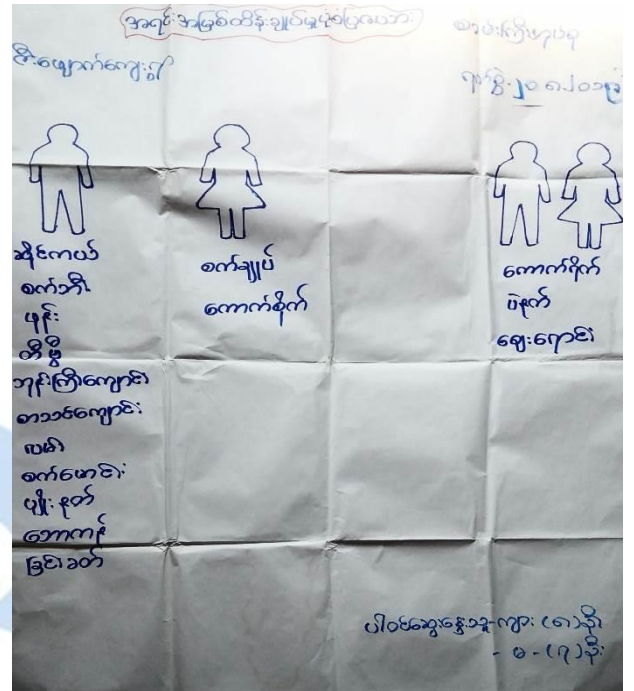 အရင်းအမြစ်ထိန်းချုပ်မှုပုံစံပြဇယား
ဇီးဖျောက်ကျေးရွာ
စာမ်းကြီးအုပ်စု
ရက်စွဲ
ဆိုင်ကယ်
စက်ဘီး
ဖုန်း
တီဗွီ
ဘုန်းကြီးကျောင်း
စာသင်ကျောင်း
လမ်း
စက်မောင်း
ပျိုးနုတ်
ဘောကန်
ခြင်းခတ်
စက်ချုပ်
ကောက်စိုက်
ကောက်ရိတ်
ပဲနုတ်
ဈေးရောင်း
ပါဝင်ဆွေးနွေးသူ-ကျား (၈)ဦး
- မ - (၇)ဦး